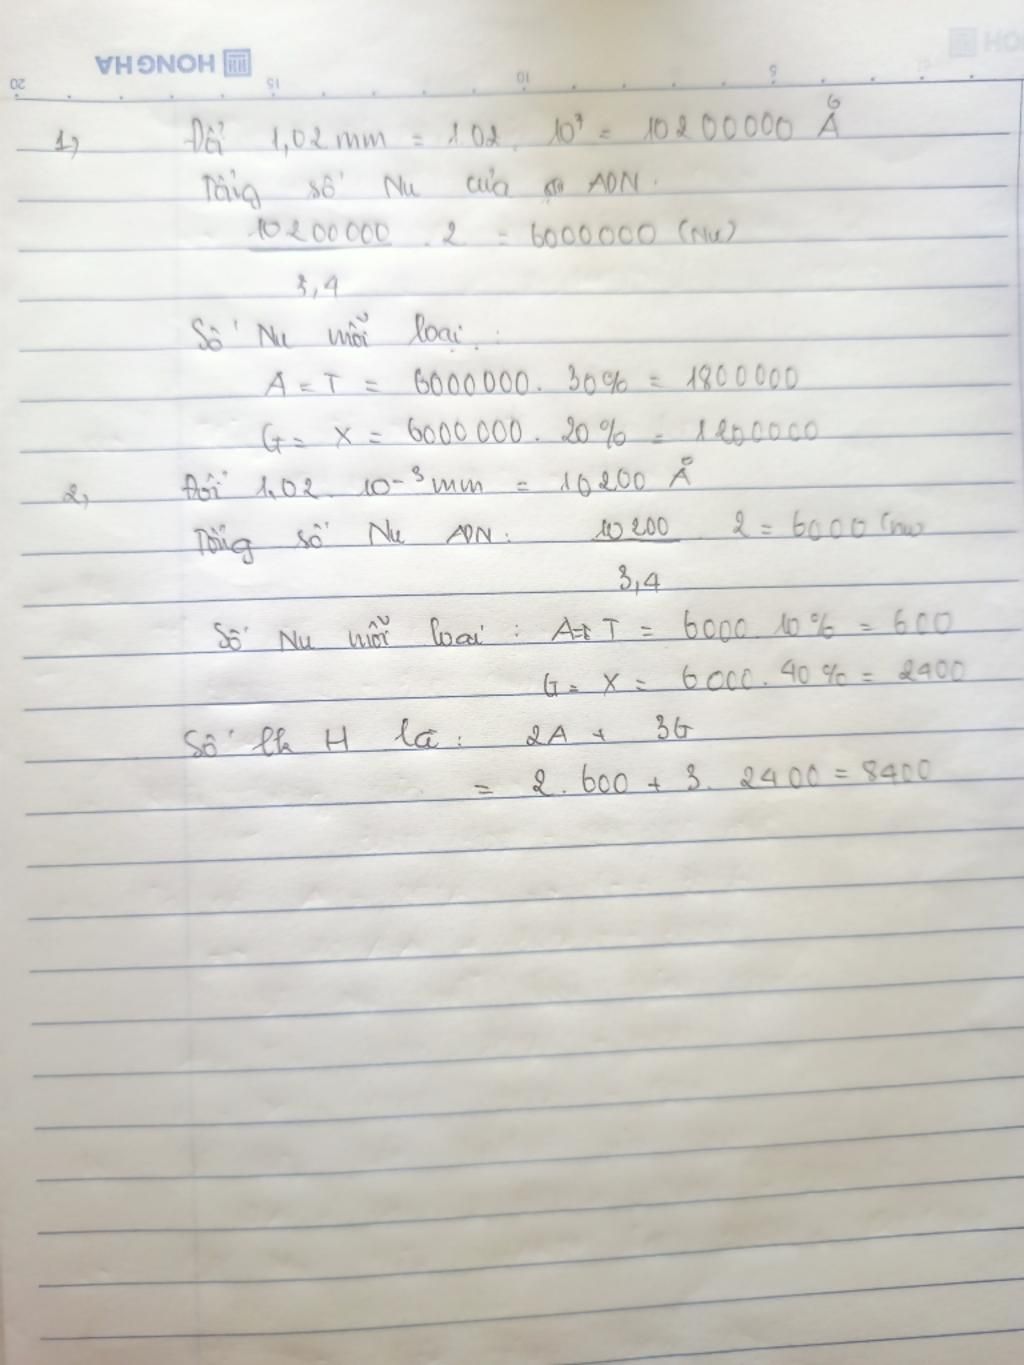 HONG HA
20 15 10 5
1, Đổi 1,02 mm = 1.02. 10⁷ = 10200000 Å
Tổng số Nu của ADN.
10200000 . 2 = 6000000 (Nu)
3,4
Số Nu mỗi loại:
A = T = 6000000. 30% = 1800000
G = X = 6000000. 20% = 1200000
2, Đổi 1,02. 10-³mm = 10200 Å
Tổng số Nu ADN: 10200 . 2 = 6000 (nu)
3,4
Số Nu mỗi loại: A = T = 6000 . 10% = 600
G = X = 6000. 40% = 2400
Số lk H là: 2A + 3G
= 2. 600 + 3. 2400 = 8400